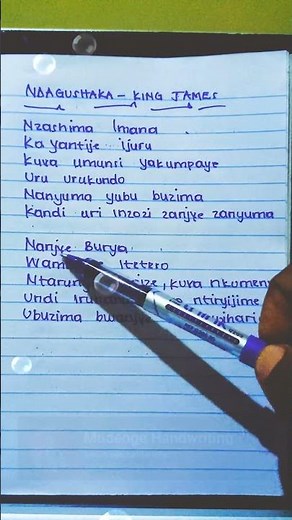 NDAGUSHAKA - KING JAMES
Nzashima Imana
Ka yantije ijuru
Kuva umunsi yakumpaye
Uru urukundo
Nanyuma yubu buzima
Kandi uri inzozi zanjye zanyuma
Nanjye Burya
Itetero
kuva nkumeny
Undi ntiyijime
Ubuzima bwanjye